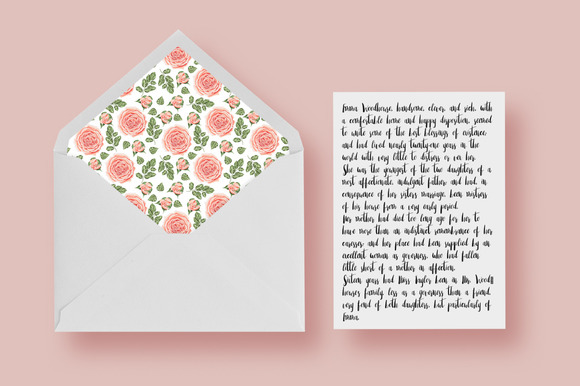 Emma Woodhouse, handsome, clever, and rich, with
a comfortable home and happy disposition, seemed
to unite some of the best blessings of existence;
and had lived nearly twenty-one years in the
world with very little to distress or vex her.
She was the youngest of the two daughters of a
most affectionate, indulgent father; and had, in
consequence of her sisters marriage, been mistress
of his house from a very early period.
Her mother had died too long ago for her to
have more than an indistinct remembrance of her
caresses; and her place had been supplied by an
excellent woman as governess, who had fallen
little short of a mother in affection.
Sixteen years had Miss Taylor been in Mr. Wood
houses family, less as a governess than a friend,
very fond of both daughters, but particularly of
Emma.